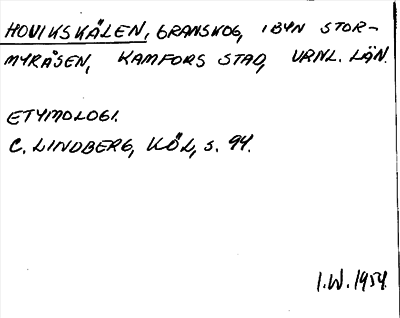 HOVIKSKÄLEN, GRANSKOG, I BYN STOR-
MYRÅSEN, KAMFORS STAD, VRNL. LÄN.
ETYMOLOGI.
C. LINDBERG, KÖL, S. 94.
I.W. 1954.